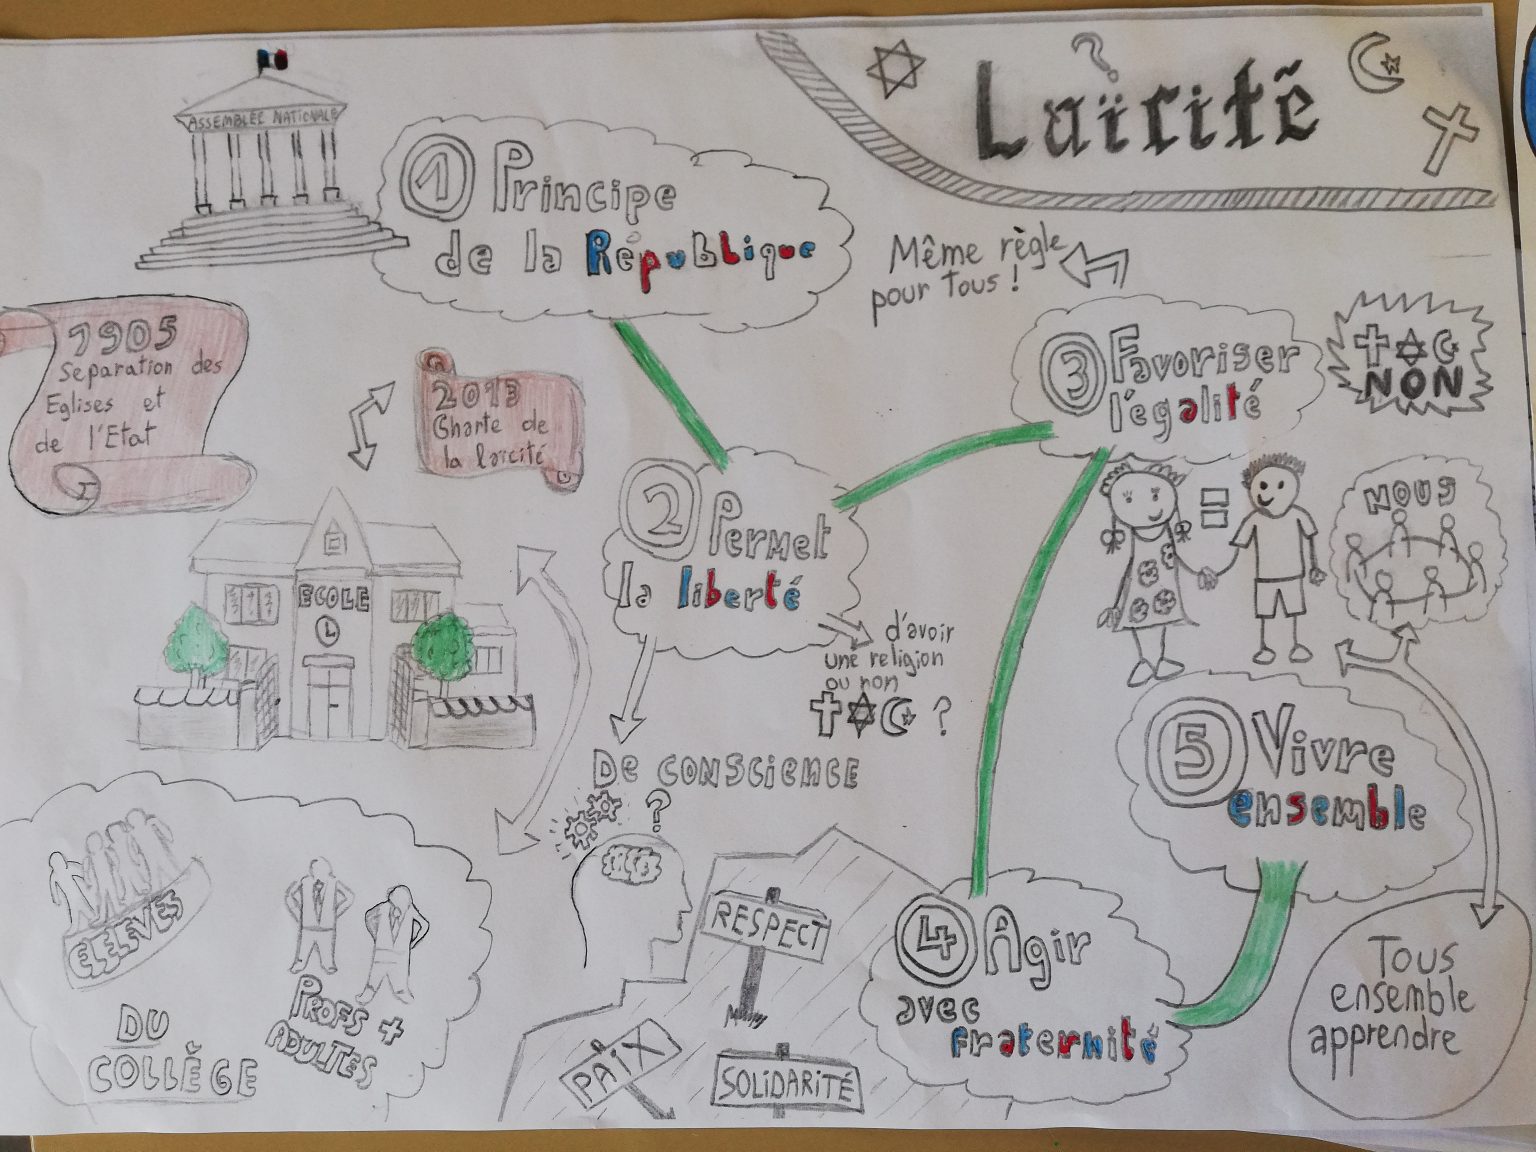 Laïcité
?
ASSEMBLÉE NATIONALE
1 Principe
de la République
1905
Séparation des
Eglises et
de l'Etat
2013
Charte de
la laïcité
Même règle
pour Tous !
3 Favoriser
l'égalité
NON
2 Permet
la liberté
d'avoir
une religion
ou non
?
DE CONSCIENCE
?
ECOLE
=
NOUS
5 Vivre
ensemble
ELEVES
PROFS +
ADULTES
DU
COLLÈGE
RESPECT
PAIX
SOLIDARITÉ
4 Agir
avec
fraternité
Tous
ensemble
apprendre